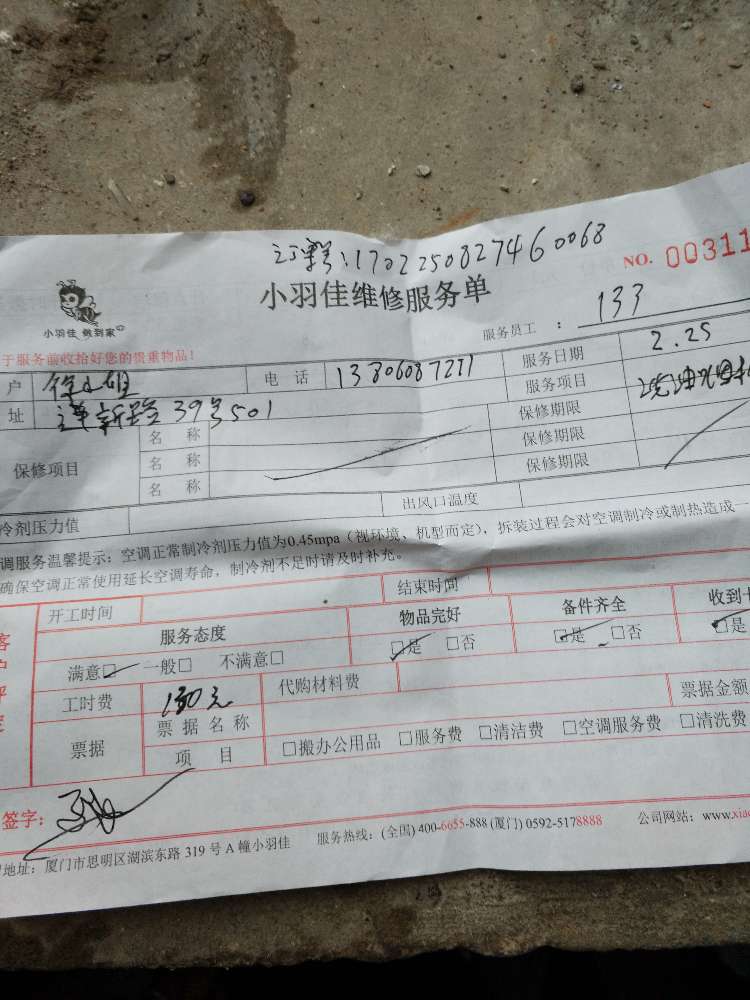 订单:1702250827460068
NO. 00311
小羽佳 做到家
小羽佳维修服务单
服务员工 : 133
于服务前收拾好您的贵重物品!
户 徐小姐 电 话 13806087271 服务日期 2.25
服务项目
址 39号501 保修期限
保修项目 名 称 保修期限
名 称 保修期限
名 称
冷剂压力值 出风口温度
调服务温馨提示:空调正常制冷剂压力值为0.45mpa(视环境、机型而定),拆装过程会对空调制冷或制热造成一
确保空调正常使用延长空调寿命,制冷剂不足时请及时补充。
开工时间 结束时间
服务态度 物品完好 备件齐全 收到
满意☑ 一般□ 不满意□ ☑是 □否 ☑是 □否 ☑是
工时费 130元 代购材料费 票据金额
票据 票 据 名 称
项 目 □搬办公用品 □服务费 □清洁费 □空调服务费 □清洗费
签字:
地址:厦门市思明区湖滨东路 319 号 A 幢小羽佳 服务热线:(全国) 400-6655-888 (厦门) 0592-5178888 公司网站:www.xiao